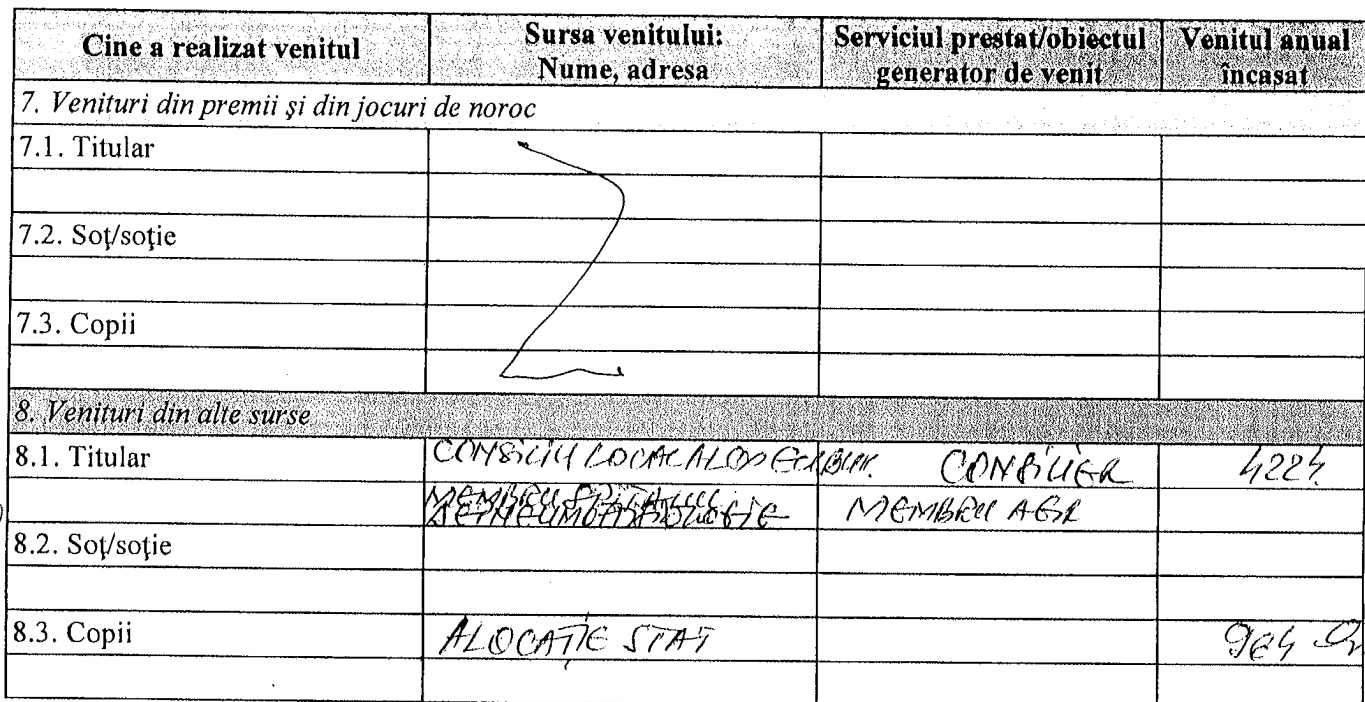 Cine a realizat venitul
Sursa venitului:
Nume, adresa
Serviciul prestat/obiectul
generator de venit
Venitul anual
încasat
7. Venituri din premii şi din jocuri de noroc
7.1. Titular
7.2. Soţ/soţie
7.3. Copii
8. Venituri din alte surse
8.1. Titular
CONSILIU LOCAL
CONSILIER
4224
MEMBRU SPITALUL
DE PNEUMOFTIZIOLOGIE
MEMBRU
8.2. Soţ/soţie
8.3. Copii
ALOCAŢIE STAT